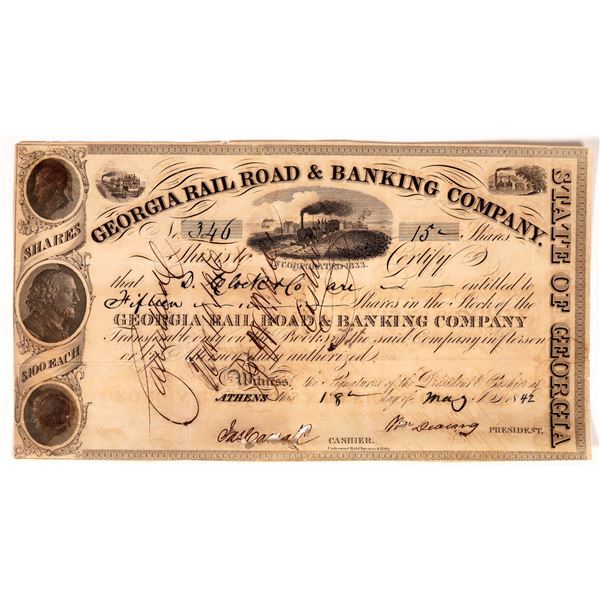 GEORGIA RAIL ROAD & BANKING COMPANY.
No. 346
15 Shares
INCORPORATED 1833.
This is to Certify
that D. are entitled to
Fifteen Shares in the Stock of the
GEORGIA RAIL ROAD & BANKING COMPANY
Transferable only on the Books of the said Company in person
or by Attorney duly authorized.
Witness, the Signatures of the President & Cashier at
ATHENS this 18 day of May 1842
CASHIER.
Wm Dearing PRESIDENT.
Underwood Bald Spencer & Hufty
SHARES
$100 EACH
STATE OF GEORGIA
Cancelled